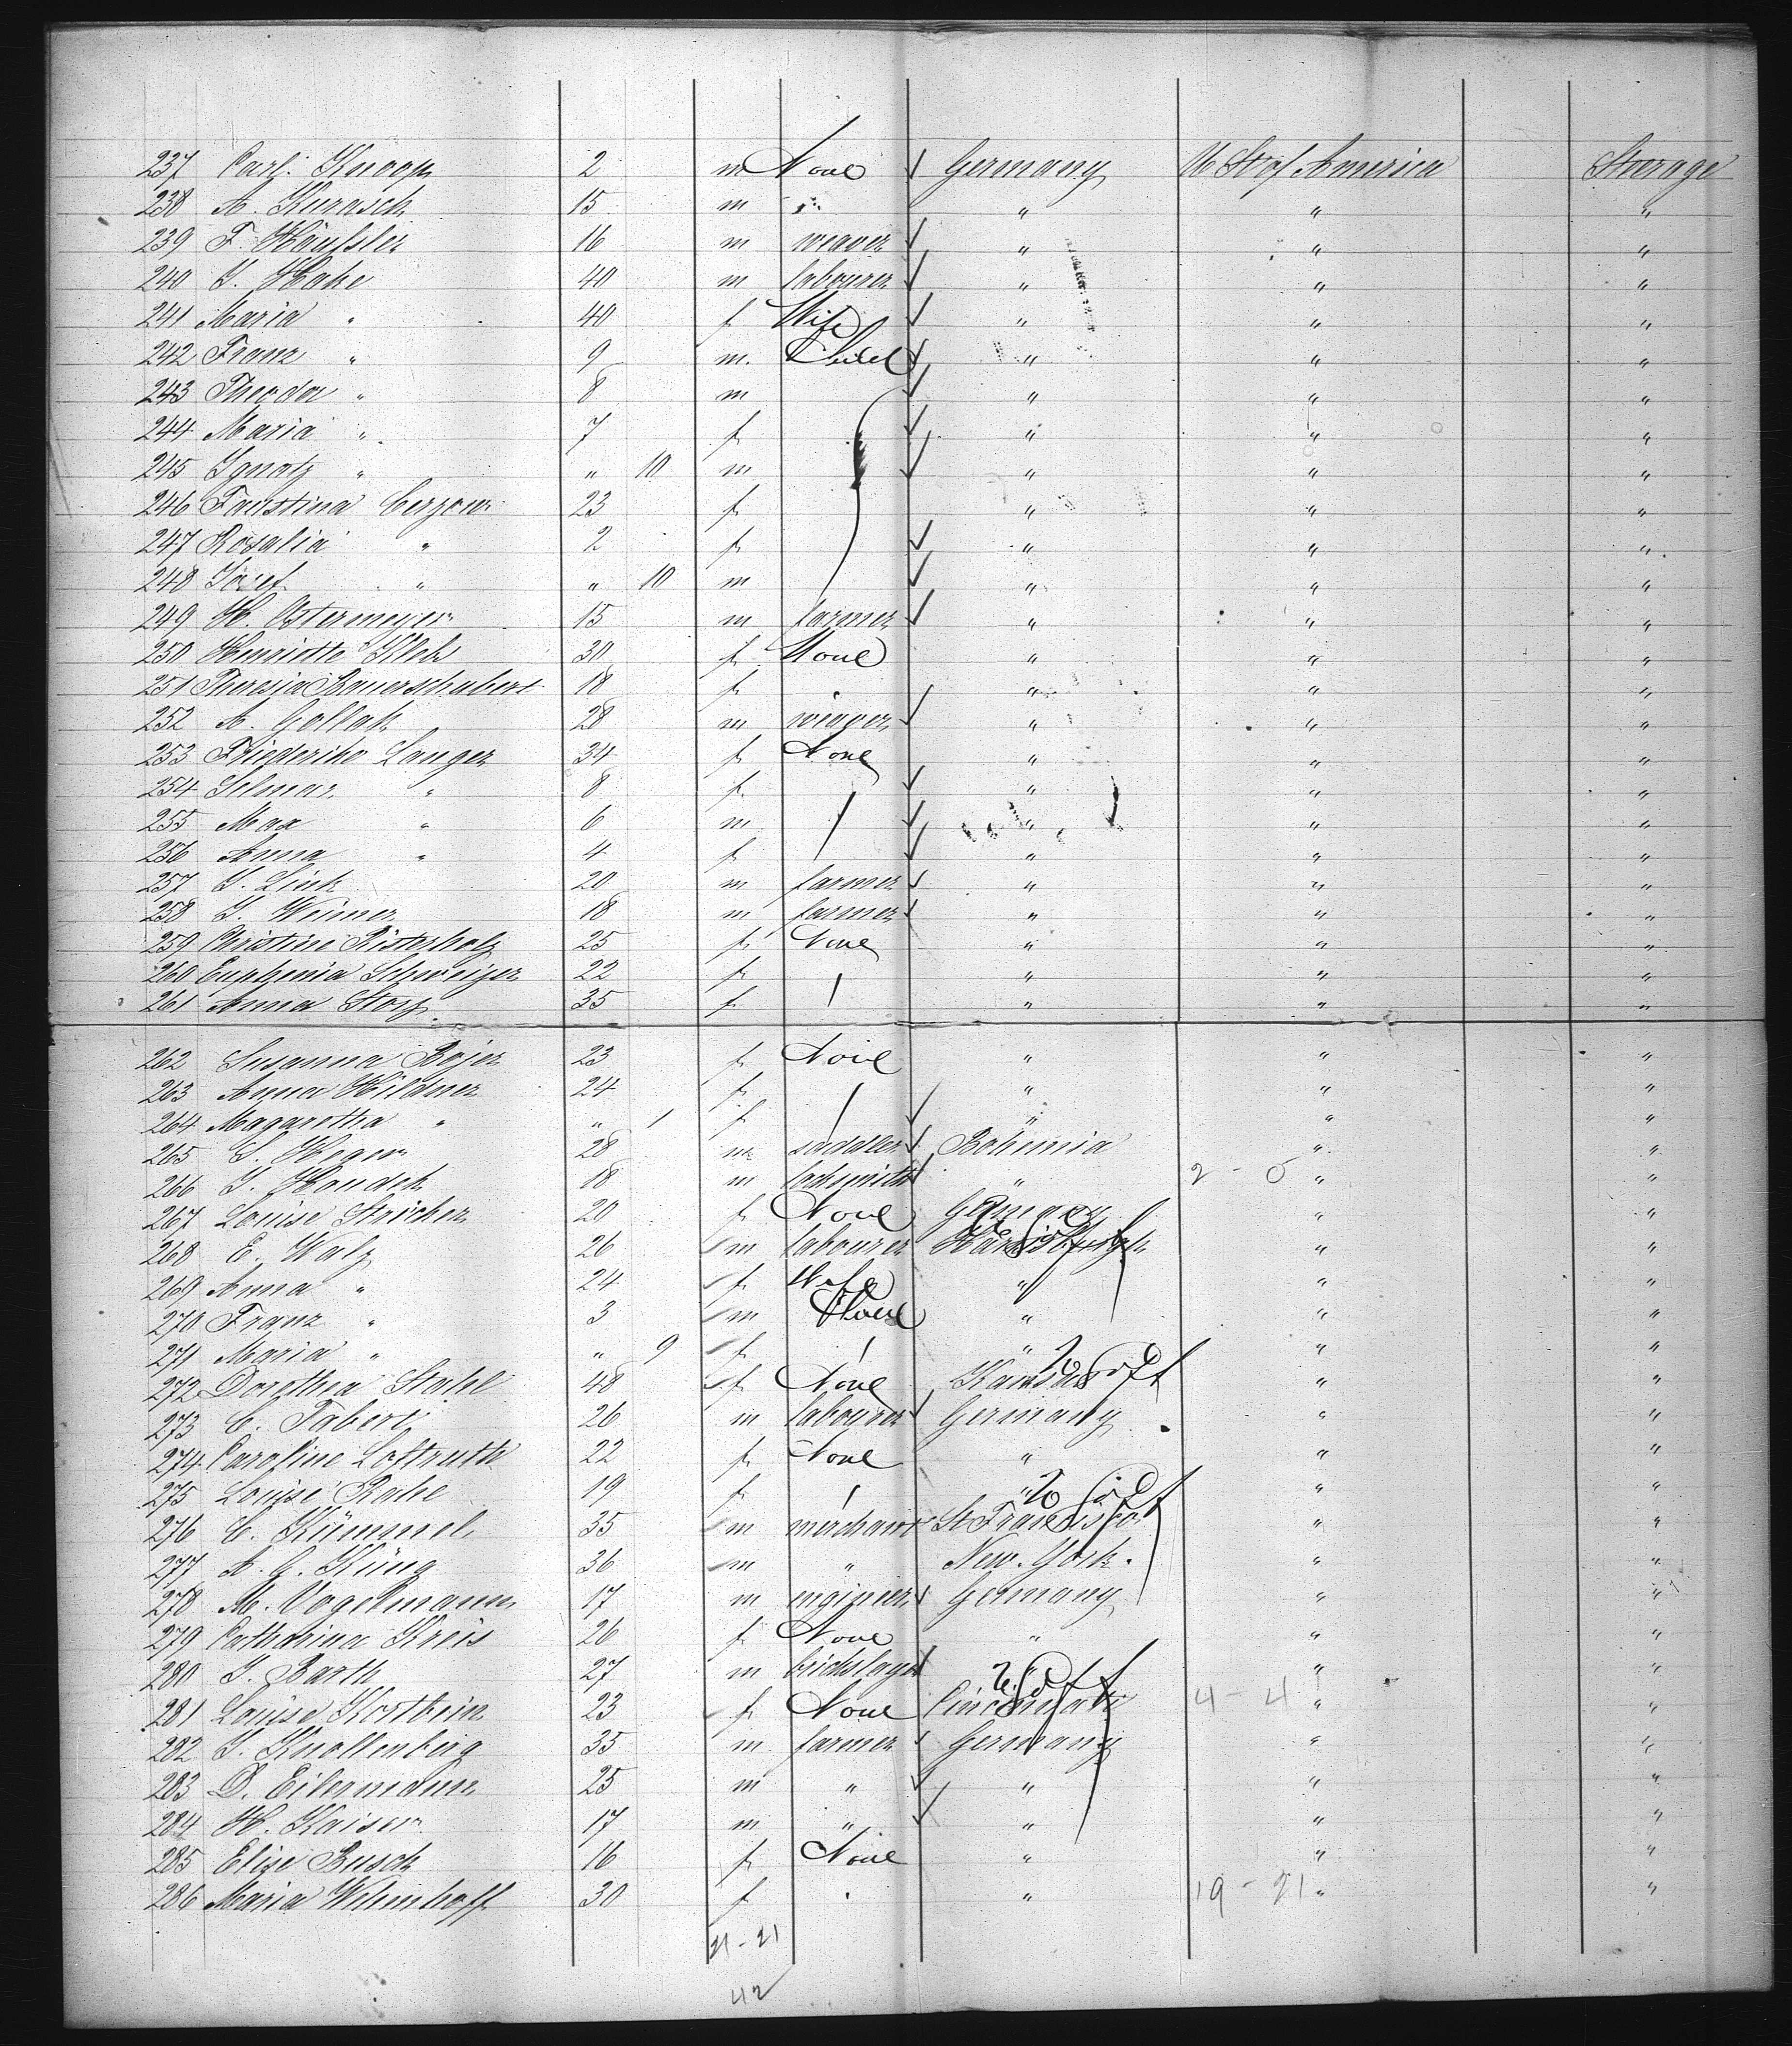 237 Carl. Knoop 2 m None ✓ Germany U St of America Steerage
238 A. Kurasch 15 m " " " "
239 F. Häussler 16 m weaver ✓ " " "
240 J. Hake 40 m labourer ✓ " " "
241 Maria " 40 f Wife ✓ " " "
242 Franz " 9 m. Child ✓ " " "
243 Theodor " 8 m ✓ " " "
244 Maria " 7 f ✓ " " "
245 Ignatz " " 10 m ✓ " " "
246 Faustina 23 f " " "
247 Rosalia " 2 f ✓ " " "
248 Josef " " 10 m ✓ " " "
249 H. Ostermeyer 15 m farmer ✓ " " "
250 Henriette 30 f None " " "
251 Theresia Bauerschubert 18 f " " " "
252 A. Gollak 28 m weaver ✓ " " "
253 Friederike Langer 34 f None " " "
254 Selmar " 8 f ✓ " " "
255 Max " 6 m ✓ " " "
256 Anna " 4 f ✓ " " "
257 J. Link 20 m farmer ✓ " " "
258 J. Weimer 18 m farmer ✓ " " "
259 Christine Bisterholz 25 f None " " "
260 Euphemia Schweizer 22 f " " "
261 Anna 35 f " " "
262 Susanna Bojer 23 f None " " "
263 Anna Hildner 24 f " " "
264 Magaretha " " 1 f ✓ " " "
265 S. Heger 28 m saddler ✓ Bohemia " "
266 J. Houdek 18 m locksmith ✓ " 2 - 0 " "
267 Louise Stricker 20 f None Germany " "
268 E. Walz 26 m labourer Harrisburgh " "
269 Anna " 24 f Wife " " "
270 Franz " 3 m " " "
271 Maria " " 9 f " " "
272 Dorothea Stahl 48 f None Kansas " "
273 C. Tabert 26 m labourer ✓ Germany " "
274 Caroline Loftruth 22 f None " " "
275 Louise Rahe 19 f " " "
276 C. Kümmel 35 m merchant St Francisco " "
277 A. G. Küng 36 m " New-York. " "
278 M. Vogelmann 17 m engineer ✓ Germany " "
279 Catharina Kreis 26 f None " " "
280 J. Barth 27 m bricklayer ✓ " " "
281 Louise Kostbein 23 f None Cincinnati 4 - 4 " "
282 J. Knollenberg 35 m farmer ✓ Germany " "
283 D. Eilermann 25 m " ✓ " " "
284 H. Kaiser 17 m " ✓ " " "
285 Elise Busch 16 f None " " "
286 Maria Wilmhoff 30 f " " 19 - 21 " "
21 - 21
42